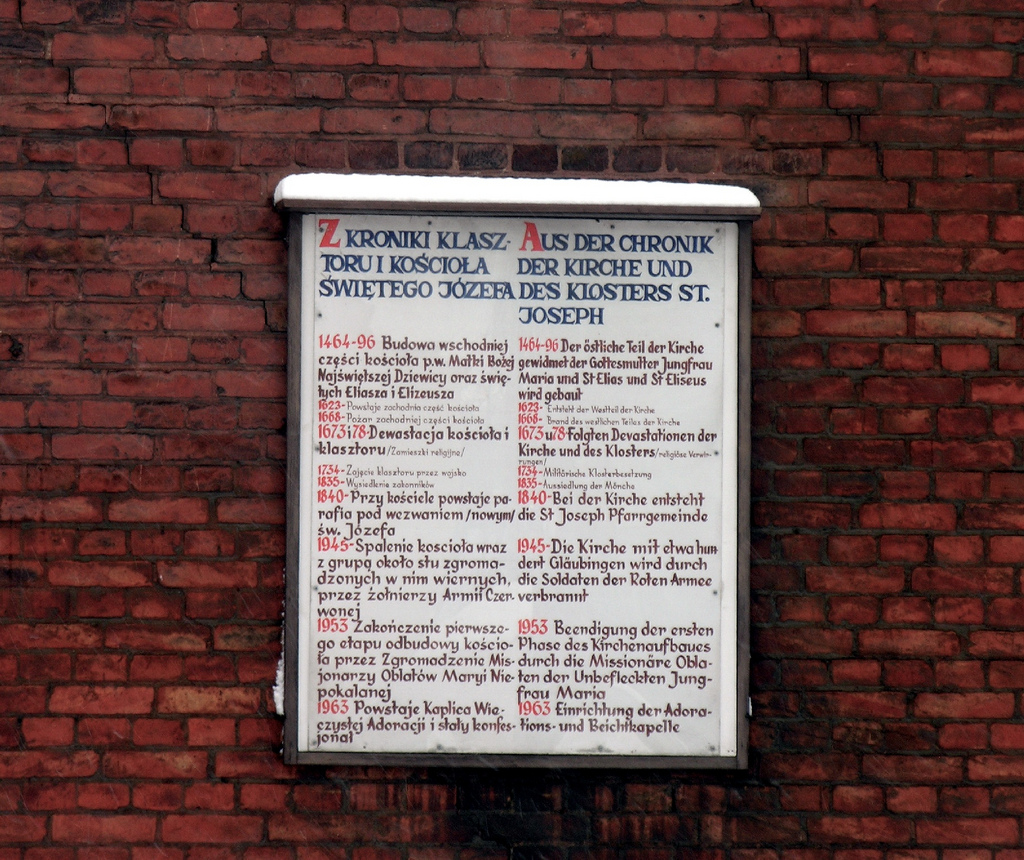 Z KRONIKI KLASZ-
TORU I KOŚCIOŁA
ŚWIĘTEGO JÓZEFA
1464-96 Budowa wschodniej
części kościoła p.w. Matki Bożej
Najświętszej Dziewicy oraz świę-
tych Eliasza i Elizeusza
1623- Powstaje zachodnia część kościoła
1668- Pożar zachodniej części kościoła
1673 i 78- Dewastacja kościoła i
klasztoru /Zamieszki religijne/
1734- Zajęcie klasztoru przez wojsko
1835- Wysiedlenie zakonników
1840- Przy kościele powstaje pa-
rafia pod wezwaniem /nowym/
św. Józefa
1945- Spalenie koscioła wraz
z grupą około stu zgroma-
dzonych w nim wiernych,
przez żołnierzy Armii Czer-
wonej
1953 Zakończenie pierwsze-
go etapu odbudowy kościo-
ła przez Zgromadzenie Mis-
jonarzy Oblatów Maryi Nie-
pokalanej
1963 Powstaje Kaplica Wie-
czystej Adoracji i stały konfes-
jonał
AUS DER CHRONIK
DER KIRCHE UND
DES KLOSTERS ST.
JOSEPH
1464-96 Der östliche Teil der Kirche
gewidmet der Gottesmutter Jungfrau
Maria und St Elias und St Eliseus
wird gebaut
1623- Entsteht der Westteil der Kirche
1668- Brand des westlichen Teiles der Kirche
1673 u 78- Folgten Devastationen der
Kirche und des Klosters /religiöse Verwir-
rungen/
1734- Militärische Klosterbesetzung
1835- Aussiedlung der Mönche
1840- Bei der Kirche entsteht
die St Joseph Pfarrgemeinde
1945- Die Kirche mit etwa hun
dert Gläubingen wird durch
die Soldaten der Roten Armee
verbrannt
1953 Beendigung der ersten
Phase des Kirchenaufbaues
durch die Missionäre Obla-
ten der Unbefleckten Jung-
frau Maria
1963 Einrichtung der Adora-
tions- und Beichtkapelle